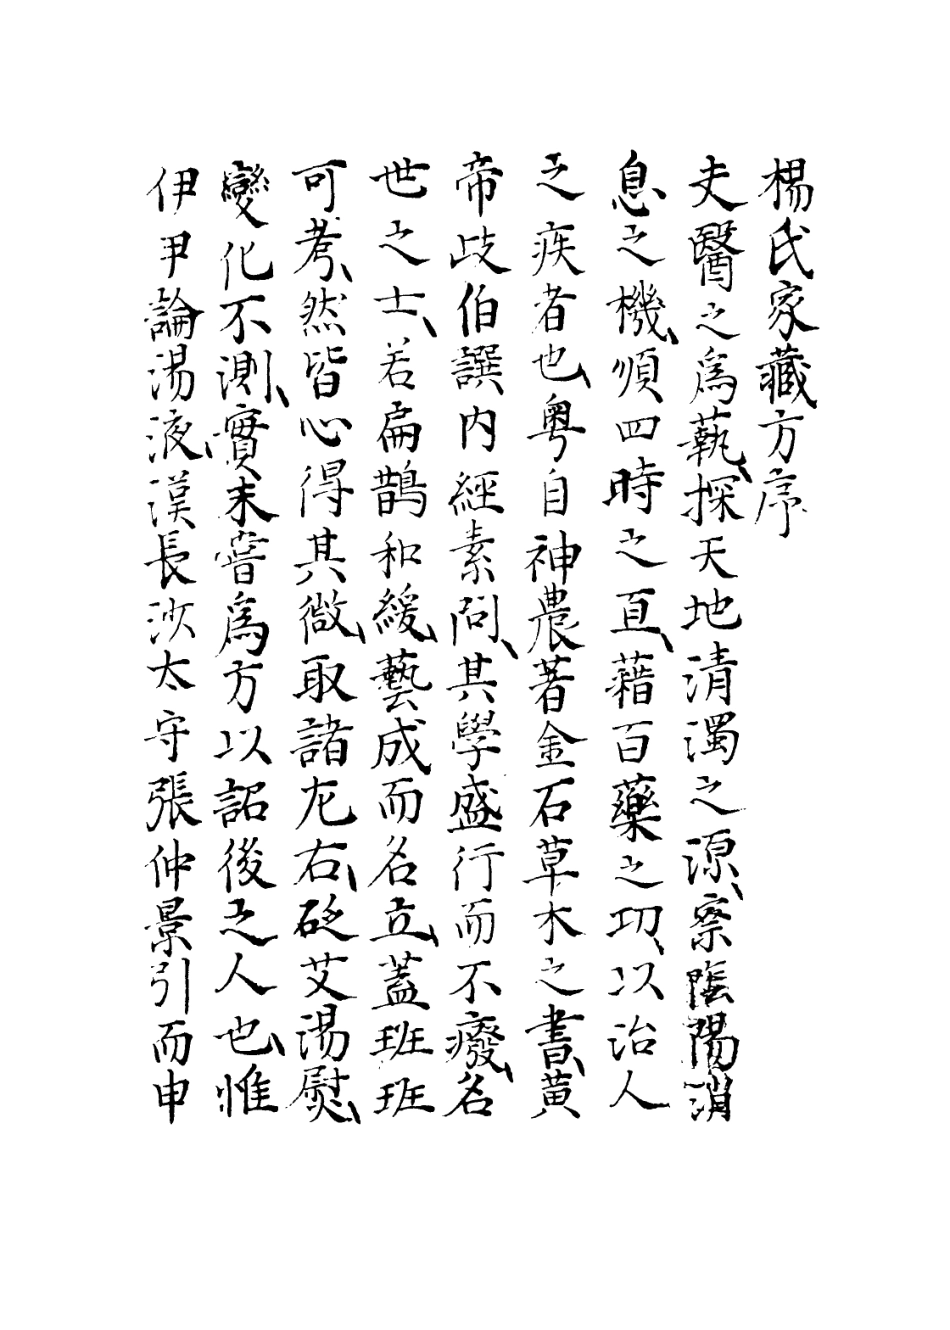 楊氏家藏方序
夫醫之為藝、探天地清濁之源、察陰陽消
息之機、順四時之宜、藉百藥之功、以治人
之疾者也、粵自神農著金石草木之書、黃
帝歧伯譔內經素問、其學盛行而不癈、名
世之士、若扁鵲和緩、藝成而名立、蓋班班
可考、然皆心得其微、取諸左右、砭艾湯熨、
變化不測、實未嘗為方以詔後之人也、惟
伊尹論湯液、漢長沙太守張仲景引而申